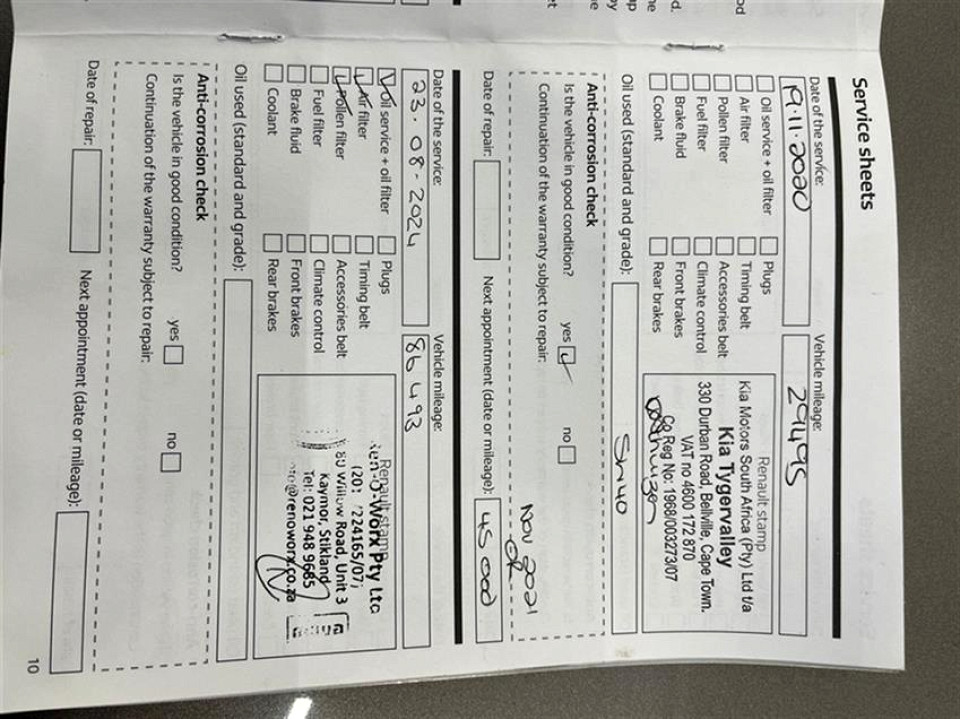 Service sheets
Date of the service: Vehicle mileage:
19.11.2020 29495
Oil service + oil filter Plugs
Air filter Timing belt
Pollen filter Accessories belt
Fuel filter Climate control
Brake fluid Front brakes
Coolant Rear brakes
Renault stamp
Kia Motors South Africa (Pty) Ltd t/a
Kia Tygervalley
330 Durban Road, Bellville, Cape Town.
VAT no 4600 172 870
Co Reg No: 1968/003273/07
Oil used (standard and grade): 5W40
Anti-corrosion check
Is the vehicle in good condition? yes no
Continuation of the warranty subject to repair:
Nov 2021
OR
Date of repair: Next appointment (date or mileage): 45 000
Date of the service: Vehicle mileage:
23.08-2024 86 493
Oil service + oil filter Plugs
Air filter Timing belt
Pollen filter Accessories belt
Fuel filter Climate control
Brake fluid Front brakes
Coolant Rear brakes
Renault stamp
Ren-O-Worx Pty Ltd
224165/07)
Willow Road, Unit 3
Kaymor, Stikland
Tel: 021 948 9685
@renoworx.co.za
Oil used (standard and grade):
Anti-corrosion check
Is the vehicle in good condition? yes no
Continuation of the warranty subject to repair:
Date of repair: Next appointment (date or mileage):
10